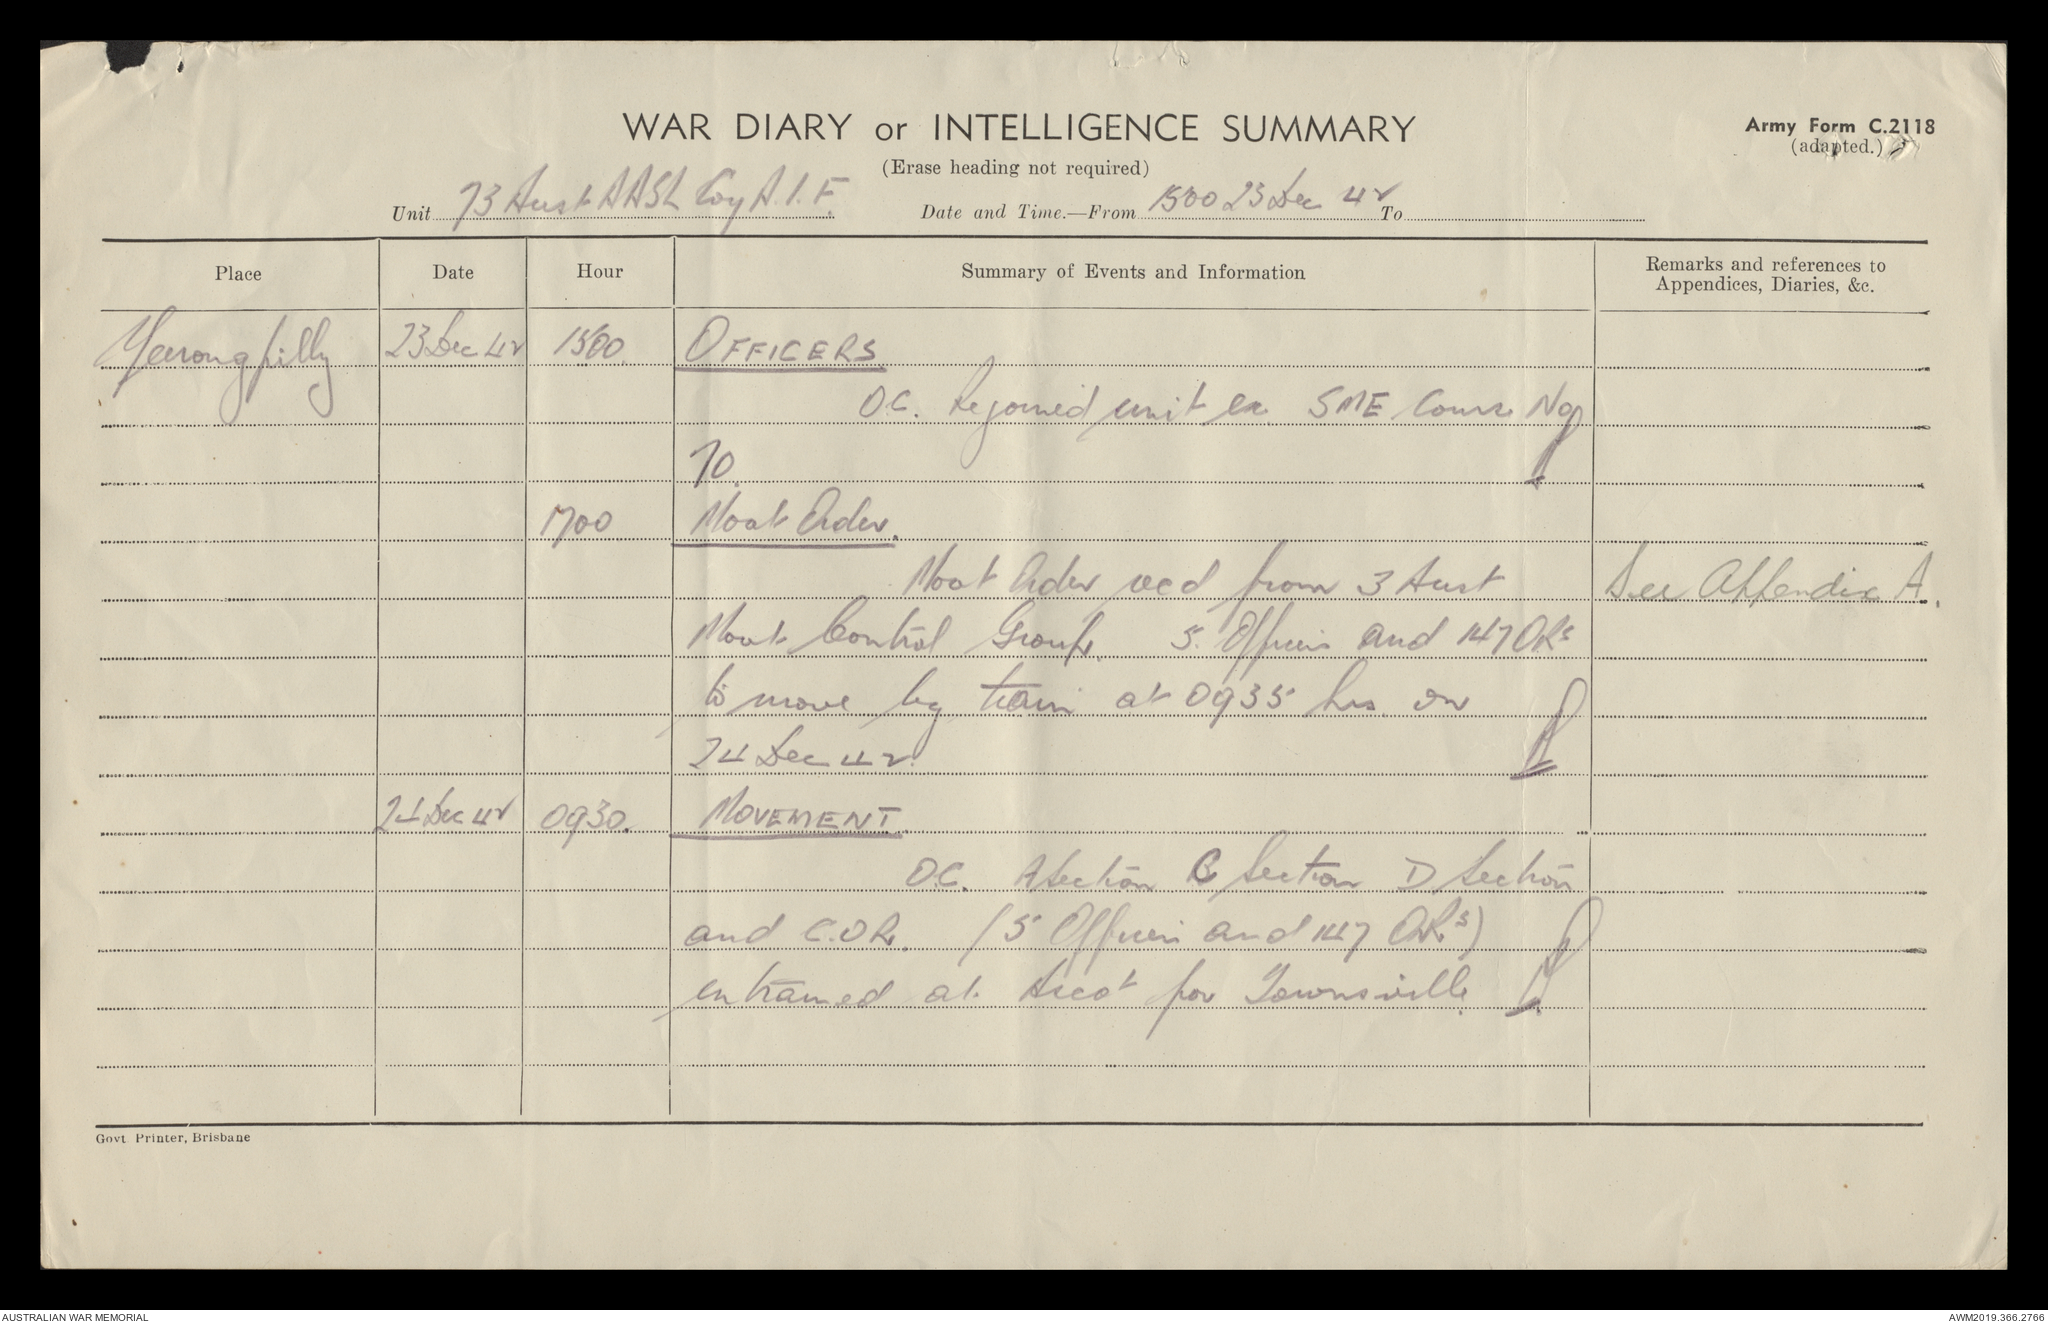 WAR DIARY or INTELLIGENCE SUMMARY
Army Form C.2118
(adapted.)
(Erase heading not required)
Unit 73 Aust AASL Coy A.I.F. Date and Time.—From 1500 23 Dec 42 To
Place Date Hour Summary of Events and Information Remarks and references to
Appendices, Diaries, &c.
Yeerongpilly 23 Dec 42 1500 OFFICERS
O.C. Rejoined unit ex SME Course No
70.
1700 Movt Order.
Movt Order recd from 3 Aust See Appendix A.
Movt Control Group. 5 Officers and 147 ORs
to move by train at 0935 hrs on
24 Dec 42.
24 Dec 42 0930. MOVEMENT
O.C. A Section C Section D Section
and C.O.R. (5 Officers and 147 ORs)
entrained at Ascot for Townsville.
Govt Printer, Brisbane
AUSTRALIAN WAR MEMORIAL
AWM2019.366.2766